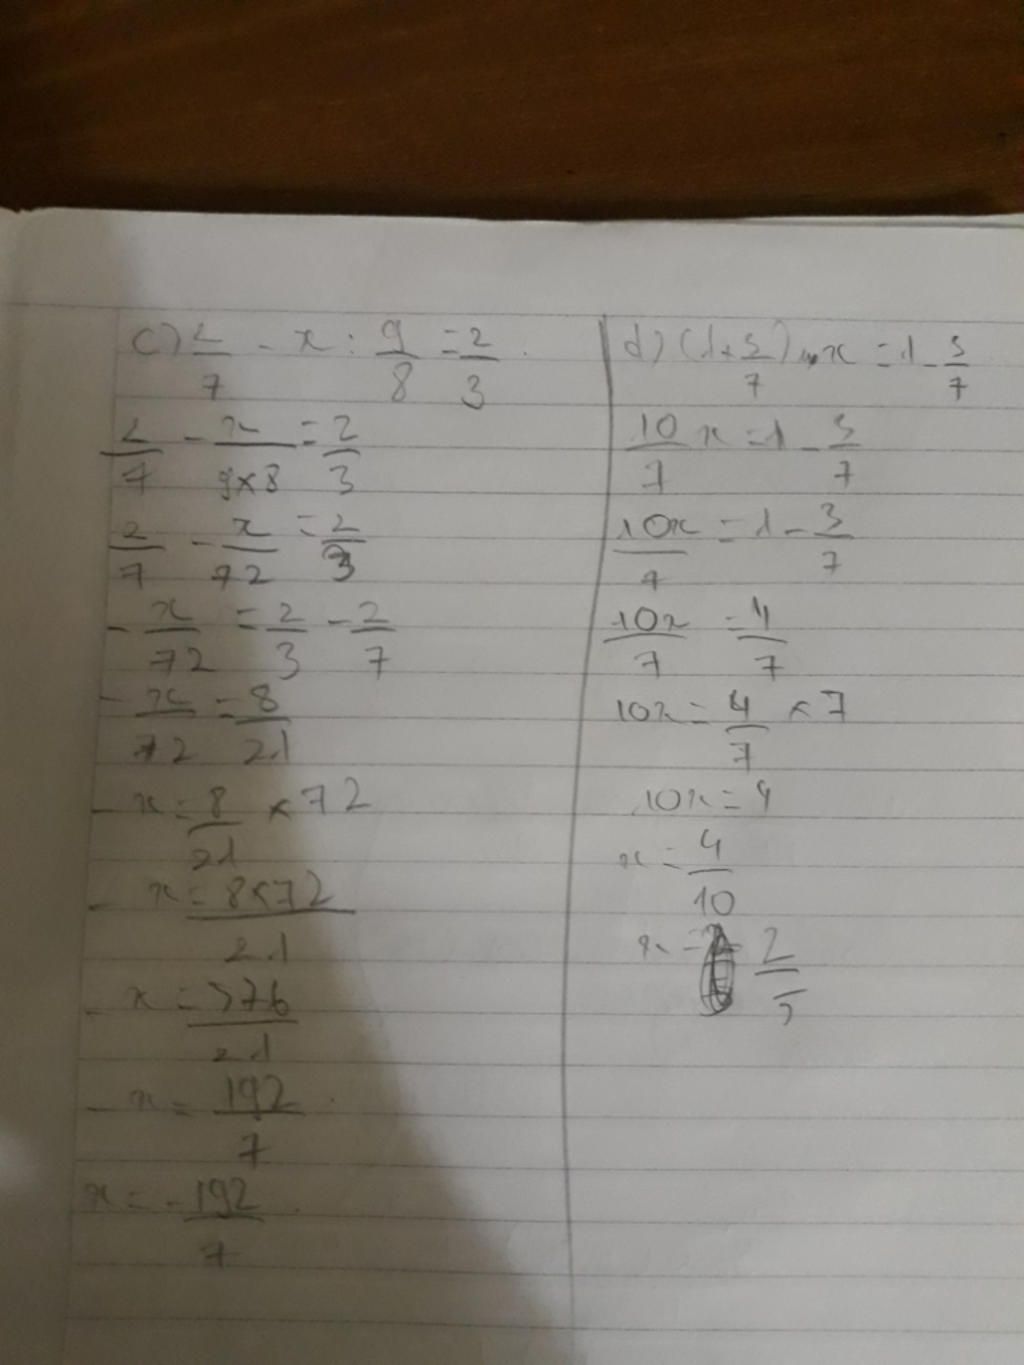 c) 2/7 - x : 9/8 = 2/3
2/7 - x/9×8 = 2/3
2/7 - x/72 = 2/3
- x/72 = 2/3 - 2/7
- x/72 = 8/21
- x = 8/21 × 72
- x = 8×72/21
- x = 576/21
- x = 192/7
x = - 192/7
d) (1+3/7) x = 1 - 3/7
10/7 x = 1 - 3/7
10x/7 = 1 - 3/7
10x/7 = 4/7
10x = 4/7 × 7
10x = 4
x = 4/10
x = 2/5